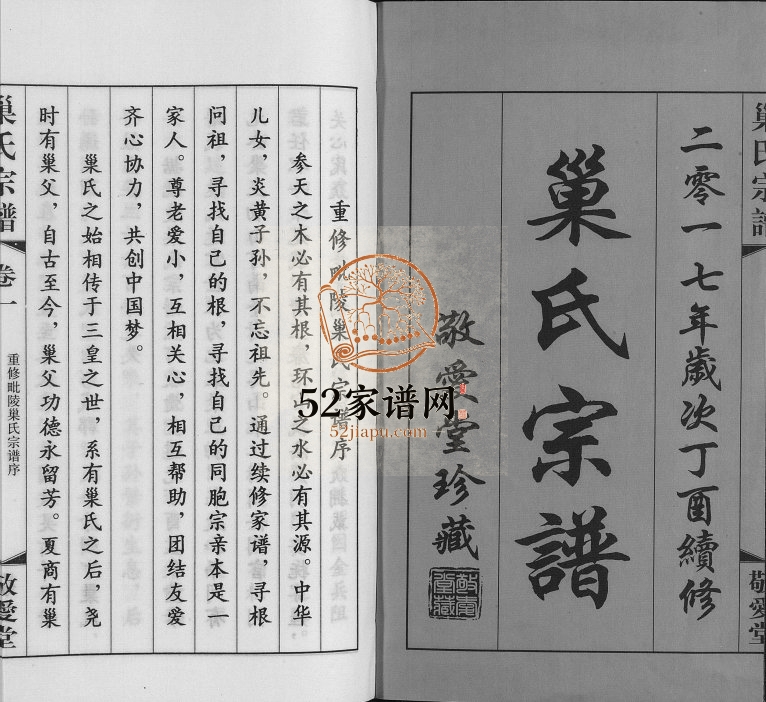 巢氏宗譜
敬愛堂
二零一七年歲次丁酉續修
巢氏宗譜
敬愛堂珍藏
敬愛堂藏
重修毗陵巢氏宗谱序
参天之木必有其根，环山之水必有其源。中华
儿女，炎黄子孙，不忘祖先。通过续修家谱，寻根
问祖，寻找自己的根，寻找自己的同胞宗亲本是一
家人。尊老爱小，互相关心，相互帮助，团结友爱
齐心协力，共创中国梦。
巢氏之始相传于三皇之世，系有巢氏之后，尧
时有巢父，自古至今，巢父功德永留芳。夏商有巢
巢氏宗譜
卷一
重修毗陵巢氏宗谱序
敬愛堂
52家谱网
52jiapu.com